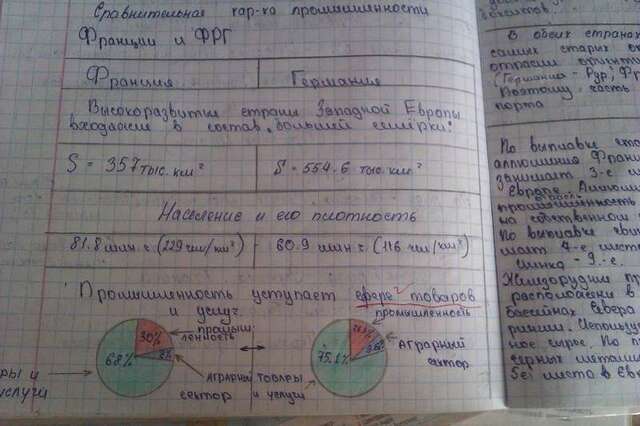 Сравнительная хар-ка промышленности
Франции и ФРГ
Франция
Германия
Высокоразвитые страны Западной Европы
входящие в состав "большей семёрки:
S = 357 тыс. км²
S = 554.6 тыс. км²
Население и его плотность
81.8 млн. ч. (229 чел/км²)
60.9 млн ч. (116 чел/км²)
Промышленность уступает сфере товаров
и услуг.
промыш
ленность
30%
68%
2%
аграрный
сектор
ры и
слуги
промышленность
аграрный
сектор
75.1%
товары
и услуги
В обеих странах
самых старых
отрасли
(Германия - Рур; Фр
Поэтому часть
порта
По выплавки
аллюминия Фран
занимает 3-е
Европе.
промышленность
на собственном
По выплавки
мает 4-е место
цинка - 9-е.
Железорудная пр
расположены в
бассейнах Севера
ное сырьё. По
5е место в Ев